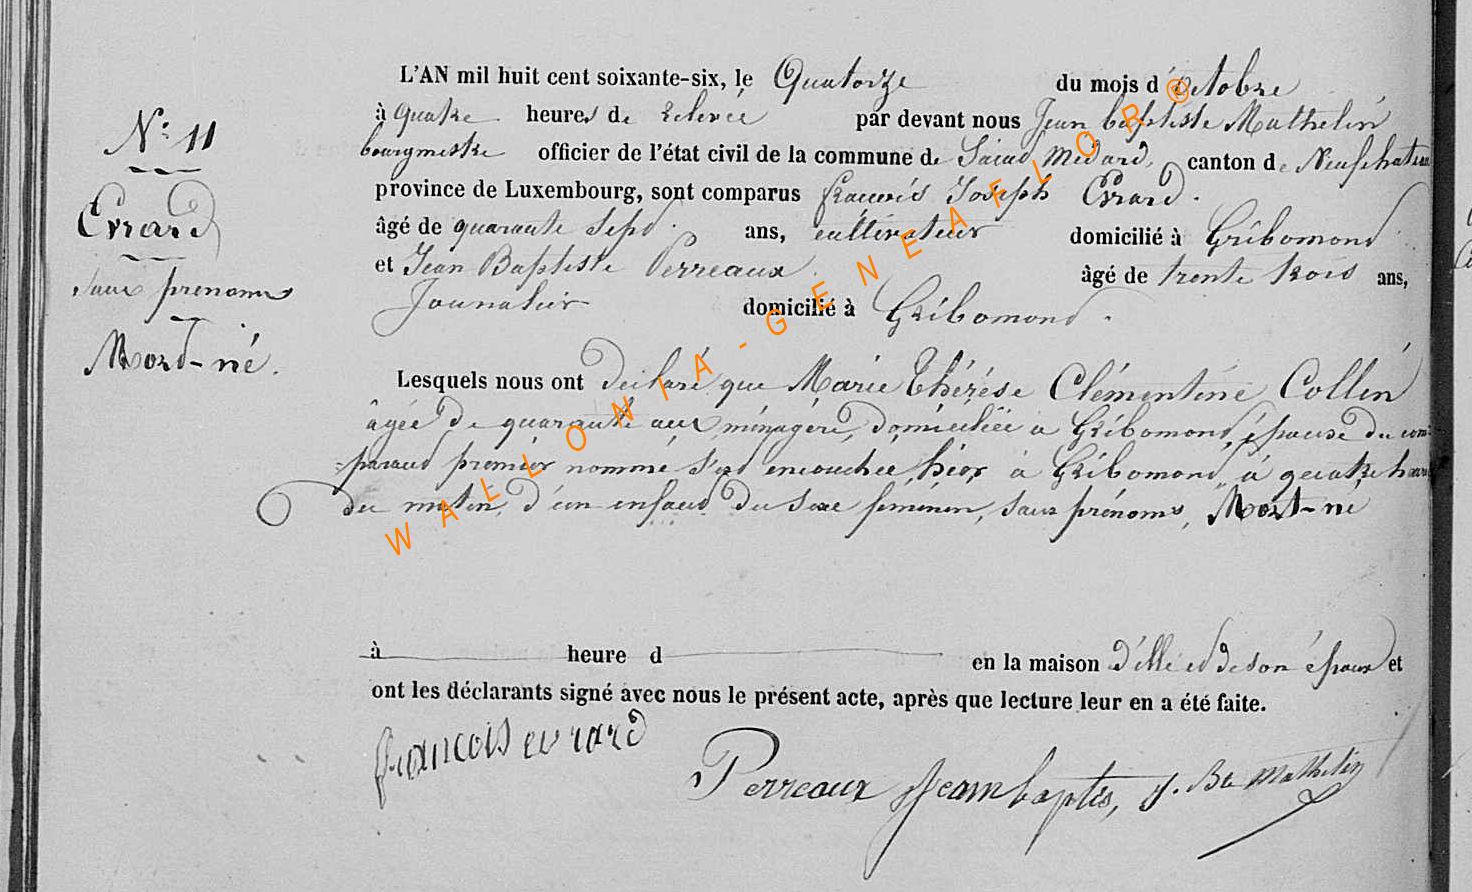 L'AN mil huit cent soixante-six, le Quatorze du mois d'octobre
à quatre heures de relevée par devant nous Jean baptiste Mathelin
bourgmestre officier de l'état civil de la commune de Saint Médard, canton de Neufchateau
province de Luxembourg, sont comparus francois Joseph Evrard.
âgé de quarante sept ans, cultivateur domicilié à Gribomont
et Jean Baptiste Perreaux âgé de trente trois ans,
Journalier domicilié à Gribomont.
N° 11
Evrard
sans prenoms
Mort-né.
Lesquels nous ont déclaré que Marie Thérèse Clémentine Collin
âgée de quarante ans, ménagère, domiciliée a Gribomont, épouse du com
parant premier nommé s'est encouchee hier à Gribomont, à quatre heures
du matin, d'un enfant du sexe féminin, sans prénoms, Mort-né
à heure d en la maison d'elle et de son époux et
ont les déclarants signé avec nous le présent acte, après que lecture leur en a été faite.
francois evrard
Perreaux Jean baptis, J. Bte Mathelin
WALLONIA-GENEAFLOR®